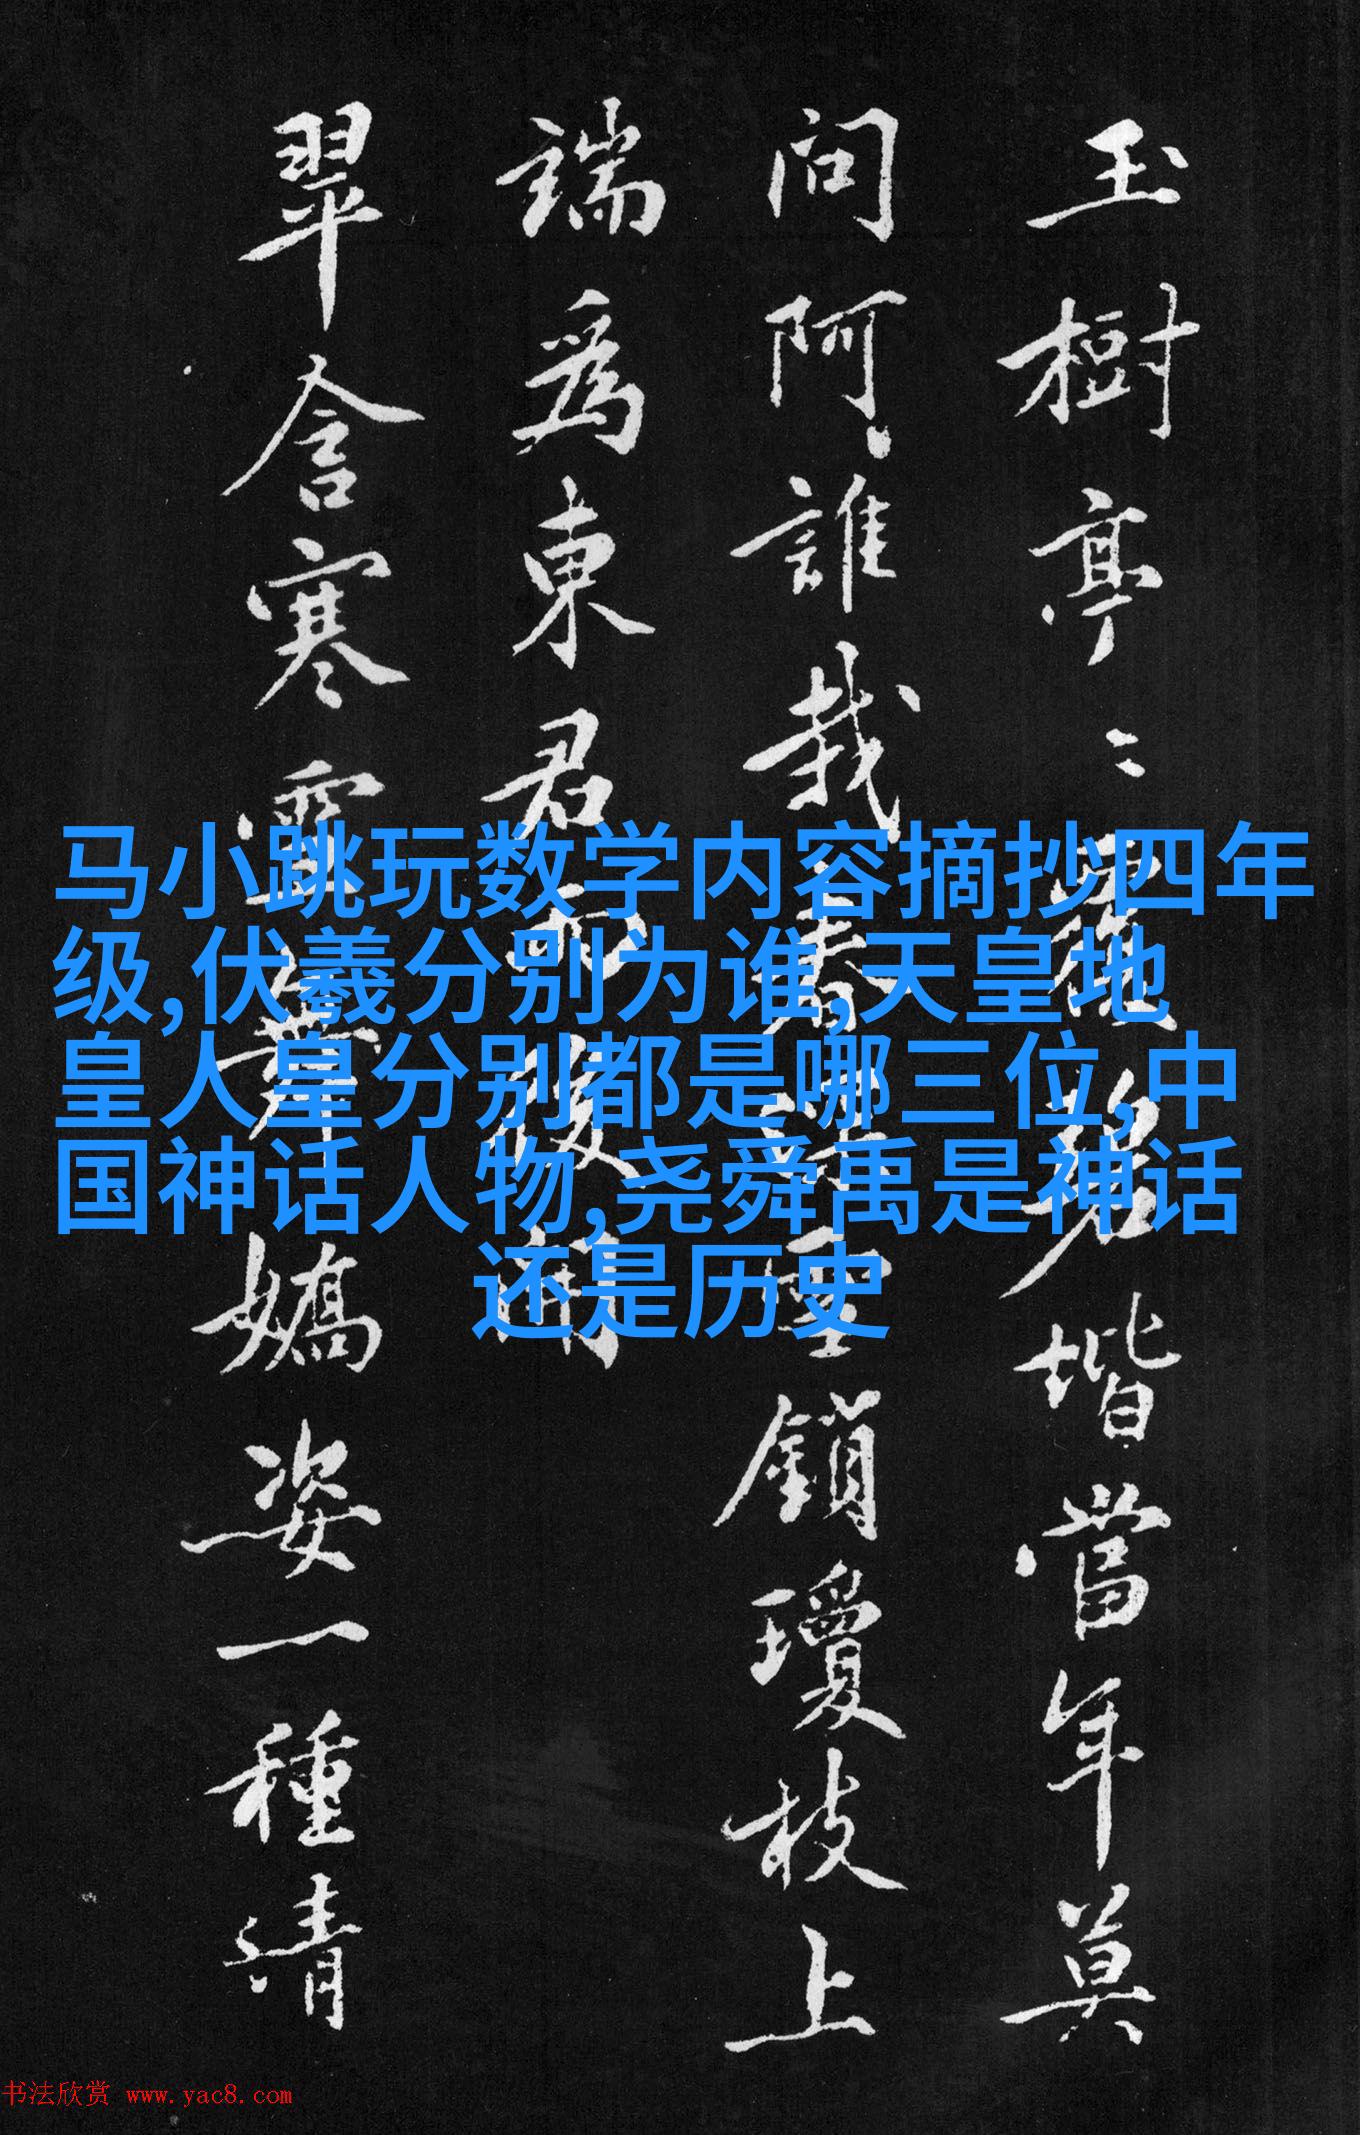 玉樹亭〻
碧堦當年莫
問阿誰栽
雲鎖瓊枝上
端爲東君
翠含寒
嬌姿一種清
马小跳玩数学内容摘抄四年
级,伏羲分别为谁,天皇地
皇人皇分别都是哪三位,中
国神话人物,尧舜禹是神话
还是历史
书法欣赏 www.yac8.com